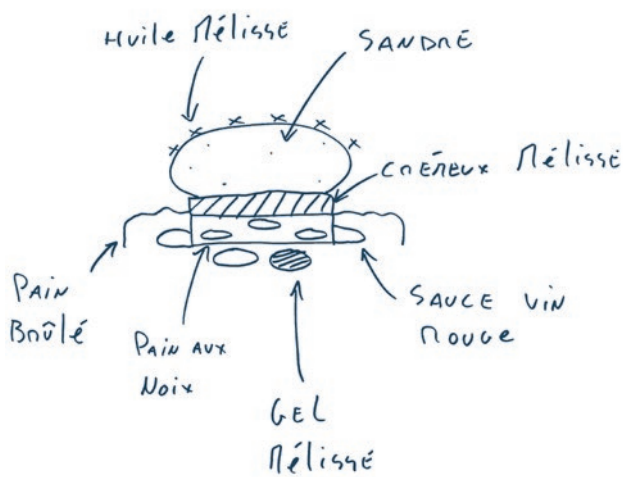 Huile Mélisse
SANDRE
CRÉMEUX Mélisse
PAIN
Brûlé
PAIN AUX
Noix
SAUCE VIN
ROUGE
GEL
Mélisse